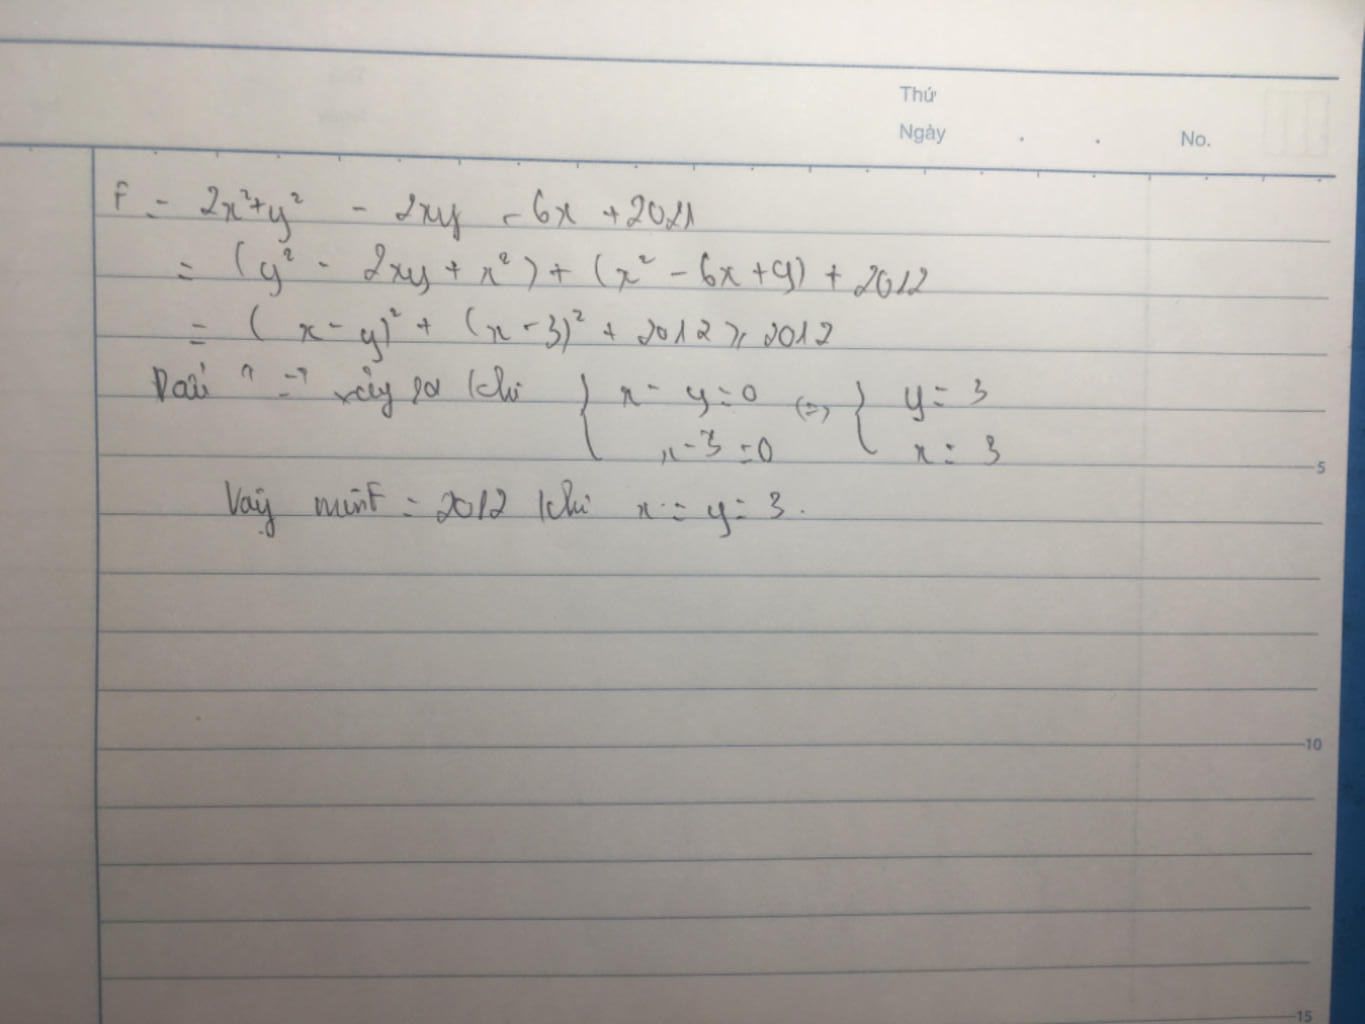 Thứ
Ngày . . No.
F = 2x² + y² - 2xy - 6x + 2021
= (y² - 2xy + x²) + (x² - 6x + 9) + 2012
= (x - y)² + (x - 3)² + 2012 ≥ 2012
Dấu "=" xảy ra khi { x - y = 0 (=) { y = 3
x - 3 = 0 x = 3
5
Vậy minF = 2012 khi x = y = 3.
10
15